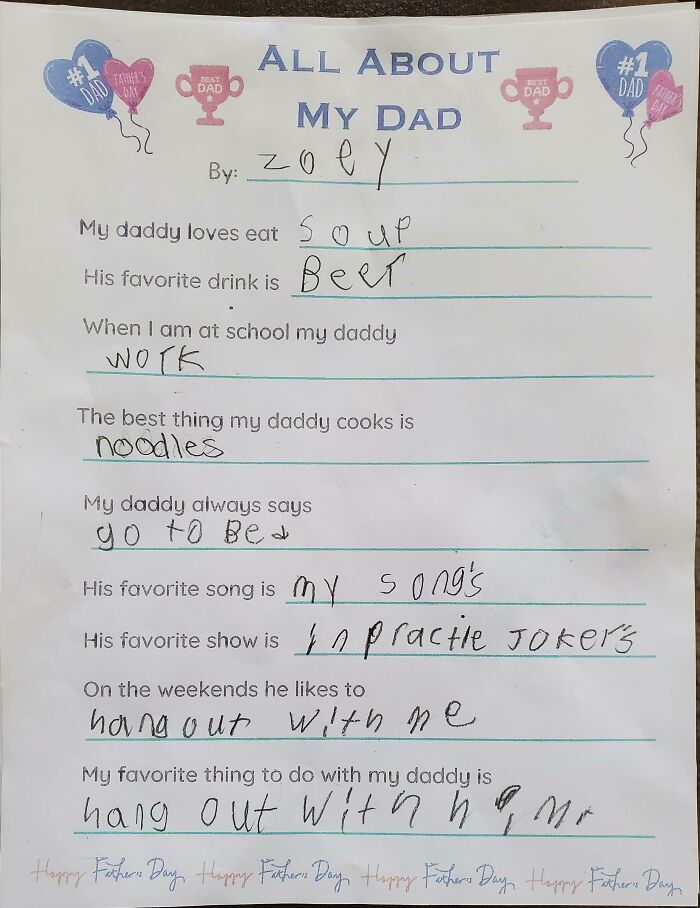 #1 DAD FATHER'S DAY BEST DAD ALL ABOUT BEST DAD #1 DAD FATHER'S DAY
MY DAD
By: zoey
My daddy loves eat soup
His favorite drink is Beer
When I am at school my daddy
work
The best thing my daddy cooks is
noodles
My daddy always says
go to Bed
His favorite song is my song's
His favorite show is inpractle JOKer's
On the weekends he likes to
hang out with me
My favorite thing to do with my daddy is
hang out with him
Happy Father's Day Happy Father's Day Happy Father's Day Happy Father's Day